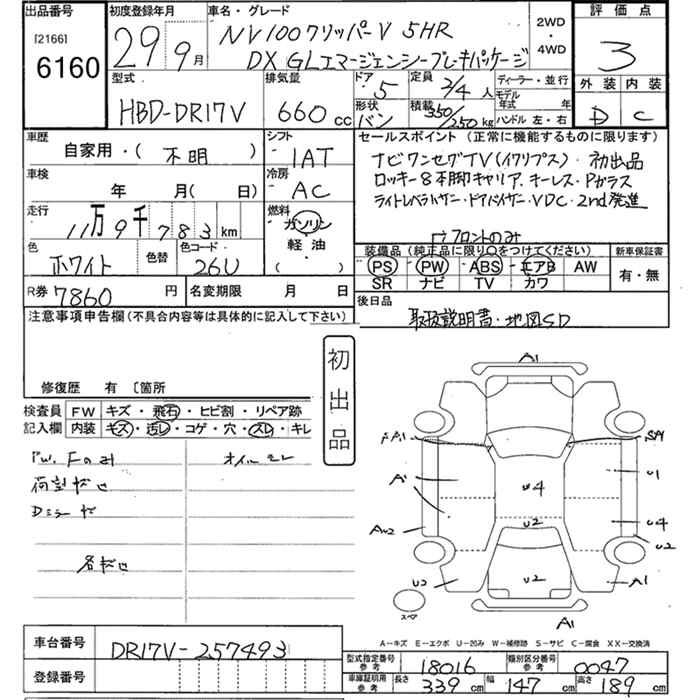 出品番号 初度登録年月 車名・グレード 2WD・4WD 評価点
[2166]
6160 29 9月 NV100クリッパーV 5HR 3
DX GLエマージェンシーブレーキパッケージ
型式 排気量 ドア 定員 ディーラー・並行 外装 内装
HBD-DR17V 660cc 5 2/4人 モデル年式 年
形状 積載 ハンドル 左・右 D C
バン 350/250kg
車歴 シフト セールスポイント (正常に機能するものに限ります)
自家用・( 不明 ) IAT ナビワンセグTV(イクリプス)・初出品
車検 冷房 ロッキー8本脚キャリア.キーレス・Pガラス
年 月( 日) AC ライトレベライザー・ドアバイザー・VDC・2nd発進
走行 燃料
11万9千783km ガソリン フロントのみ
色 色替 色コード 軽油・ 装備品(純正品に限り○をつけてください) 新車保証書
ホワイト 26U ( ) PS PW ABS エアB AW 有・無
SR ナビ TV カワ
R券 7860円 名変期限 月 日 後日品
注意事項申告欄(不具合内容等は具体的に記入して下さい) 取扱説明書・地図SD
初出品
修復歴 有 〔箇所
検査員 FW キズ・飛石・ヒビ割・リペア跡
記入欄 内装 キズ・汚レ・コゲ・穴・スレ・キレ
PW.Fのみ オイルモレ
A1
A1
U4
U1
A1
U4
AW2 U2 U2
U2 U2 A1
スペア A1
A-キズ E-エクボ U-凹み W-補修跡 S-サビ C-腐食 XX-交換済
車台番号 DR17V-257493 型式指定番号参考 18016 類別区分番号参考 0047
登録番号 車庫証明用参考 長さ 339cm 幅 147cm 高さ 189cm